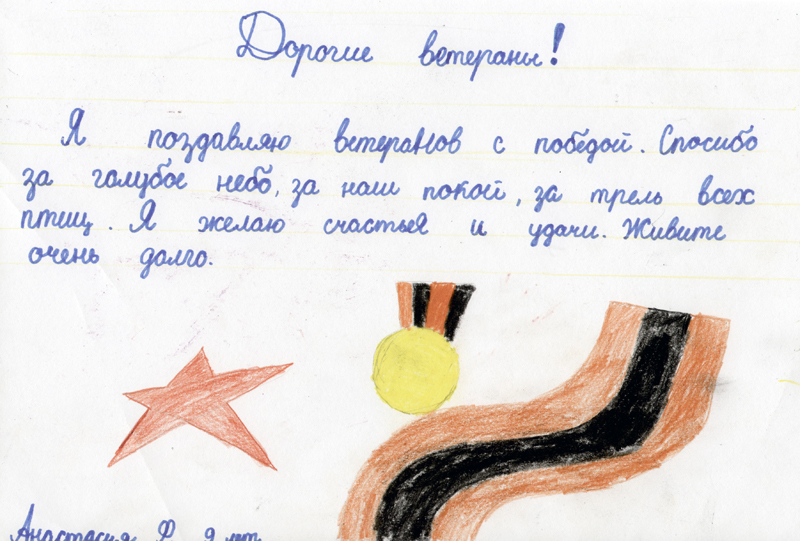 Дорогие ветераны!
Я поздавляю ветеранов с победой. Спосибо
за голубое небо, за наш покой, за трель всех
птиц. Я желаю счастья и удачи. Живите
очень долго.
Анастасия Ф. 9 лет